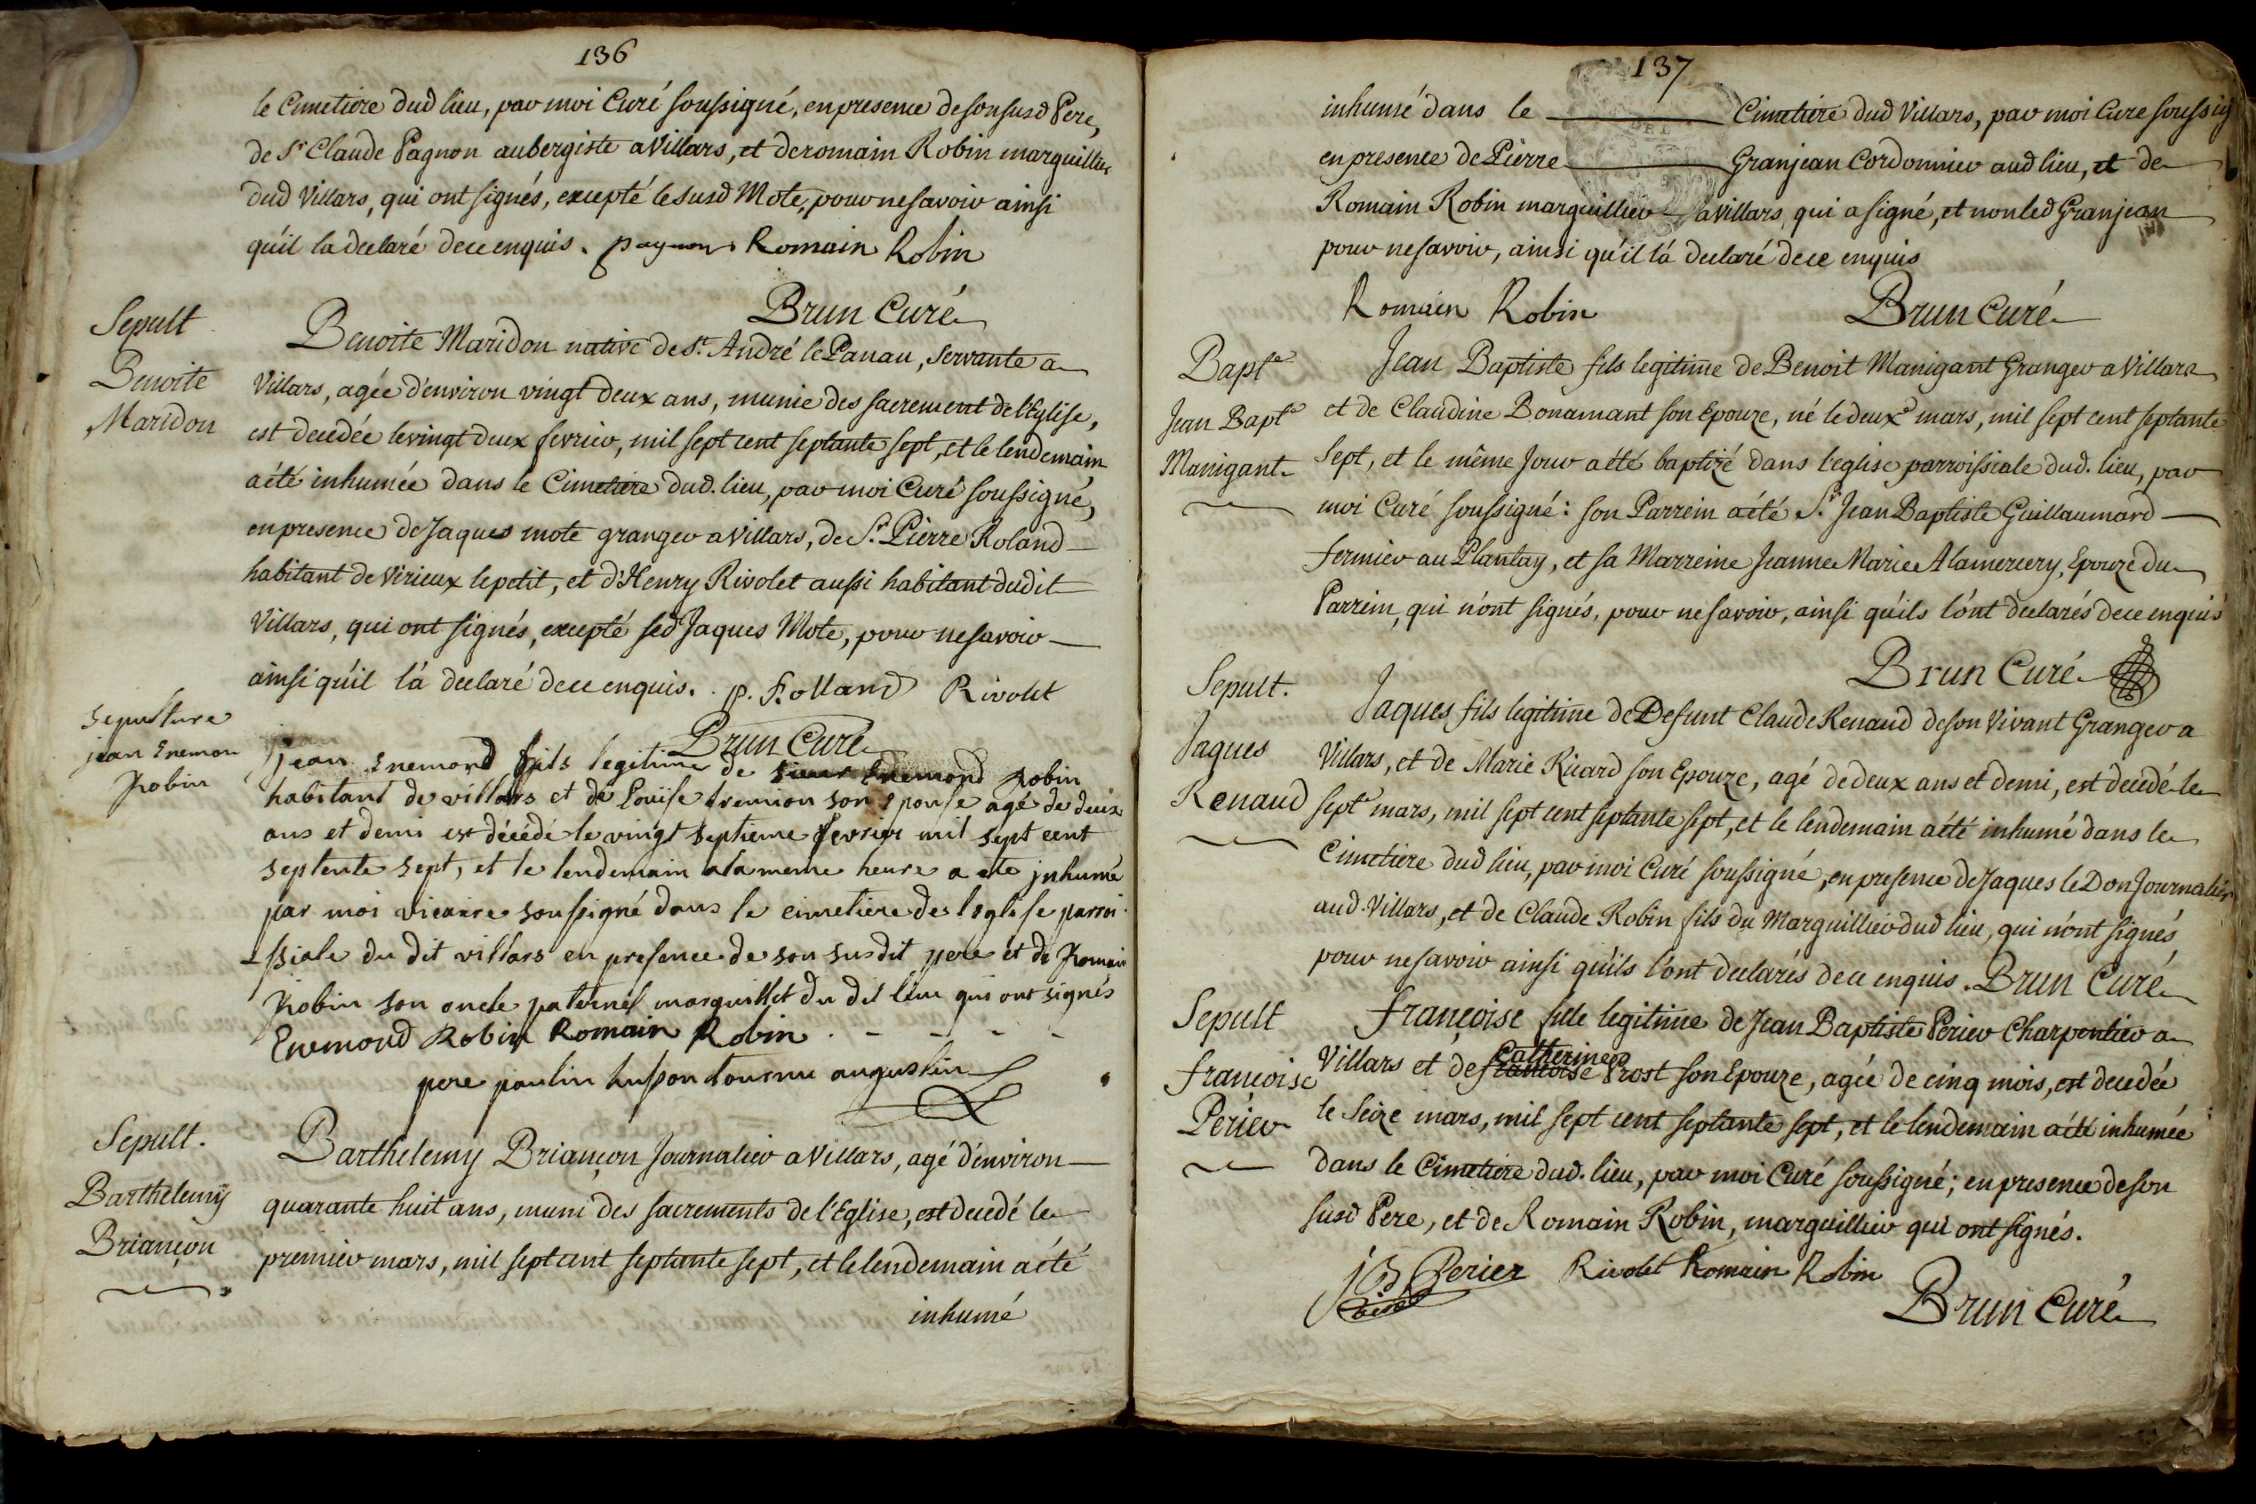 136
le Cimetiere dud lieu, par moi Curé soussigné, en presence de son susd Pere,
de Sr Claude Pagnon aubergiste a Villars, et de romain Robin marguillier
dud Villars, qui ont signés, excepté le susd Mote, pour ne savoir ainsi
qu'il la declaré de ce enquis. pagnon Romain Robin
Brun Curé
Sepult
Benoite
Maridon
Benoite Maridon native de St. André le Panau, Servante a
Villars, agée d'environ vingt deux ans, munie des sacrement de l'Eglise,
est decedée le vingt deux fevrier, mil sept cent septante sept, et le lendemain
a été inhumée dans le Cimetiere dud. lieu, par moi Curé soussigné,
en presence de Jaques mote granger a Villars, de Sr. Pierre Roland
habitant de Virieux le petit, et d'Henry Rivolet aussi habitant dudit
Villars, qui ont signés, excepté led Jaques Mote, pour ne savoir
ainsi qu'il l'a declaré de ce enquis. p. Rolland Rivolet
Brun Curé
Sepulture
jean Enemon
Robin
jean Enemond fils legitime de sieur Enemond Robin
habitant de villars et de Louïse tremion son Epouse agé de deux
ans et demi est décédé le vingt septieme fevrier mil sept cent
septente sept, et le lendemain a la meme heure a ete jnhumé
par moi vicaire soussigné dans le cimetiere de l'eglise parroi
ssiale du dit villars en presence de son susdit pere et de Romain
Robin son oncle paternel marguillet du dit lieu qui ont signés
Enemond Robin Romain Robin . - - - -
pere paulin husson tournu augustin
Sepult.
Barthelemÿ
Briançon
Barthelemy Briançon Journalier a Villars, agé d'environ
quarante huit ans, muni des sacrements de l'Eglise, est decedé le
premier mars, mil sept cent septante sept, et le lendemain a été
inhumé
137
inhumé dans le Cimetiere dud Villars, par moi Curé soussig
en presence de Pierre Granjean Cordonnier aud lieu, et de
Romain Robin marguillier a Villars, qui a signé, et non led Granjean
pour ne savoir, ainsi qu'il l'a declaré de ce enquis
Romain Robin Brun Curé
Bapte
Jean Bapte
Manigant
Jean Baptiste fils legitime de Benoit Manigant Granger a Villars
et de Claudine Bonamant son Epouze, né le deuxe mars, mil sept cent septante
Sept, et le même Jour a été baptizé dans l'eglise parroissiale dud. lieu, par
moi Curé soussigné: son Parrein a été Sr. Jean Baptiste Guillaumard
fermier au Plantay, et sa Marreine Jeanne Marie Alamercery, Epouze du
Parrein, qui n'ont signés, pour ne savoir, ainsi qu'ils l'ont declarés de ce enquis
Brun Curé
Sepult.
Jaques
Renaud
Jaques fils legitime de Defunt Claude Renaud de son Vivant Granger a
Villars, et de Marie Ricard son Epouze, agé de deux ans et demi, est decedé le
septe mars, mil sept cent septante sept, et le lendemain a été inhumé dans le
Cimetiere dud lieu, par moi Curé soussigné, en presence de Jaques le Don Journalier
aud. Villars, et de Claude Robin fils du Marguillier dud lieu, qui n'ont signés
pour ne savoir ainsi qu'ils l'ont declarés de ce enquis. Brun Curé
Sepult
françoise
Perier
françoise fille legitime de Jean Baptiste Perier Charpentier a
Catherine
Villars et de francoise Prost son Epouze, agée de cinq mois, est decedée
le Seize mars, mil sept cent septante sept, et le lendemain a été inhumée
dans le Cimetiere dud. lieu, par moi Curé soussigné; en presence de son
susd Pere, et de Romain Robin, marguillier qui ont signés.
jB Perier Rivolet Romain Robin
Brun Curé